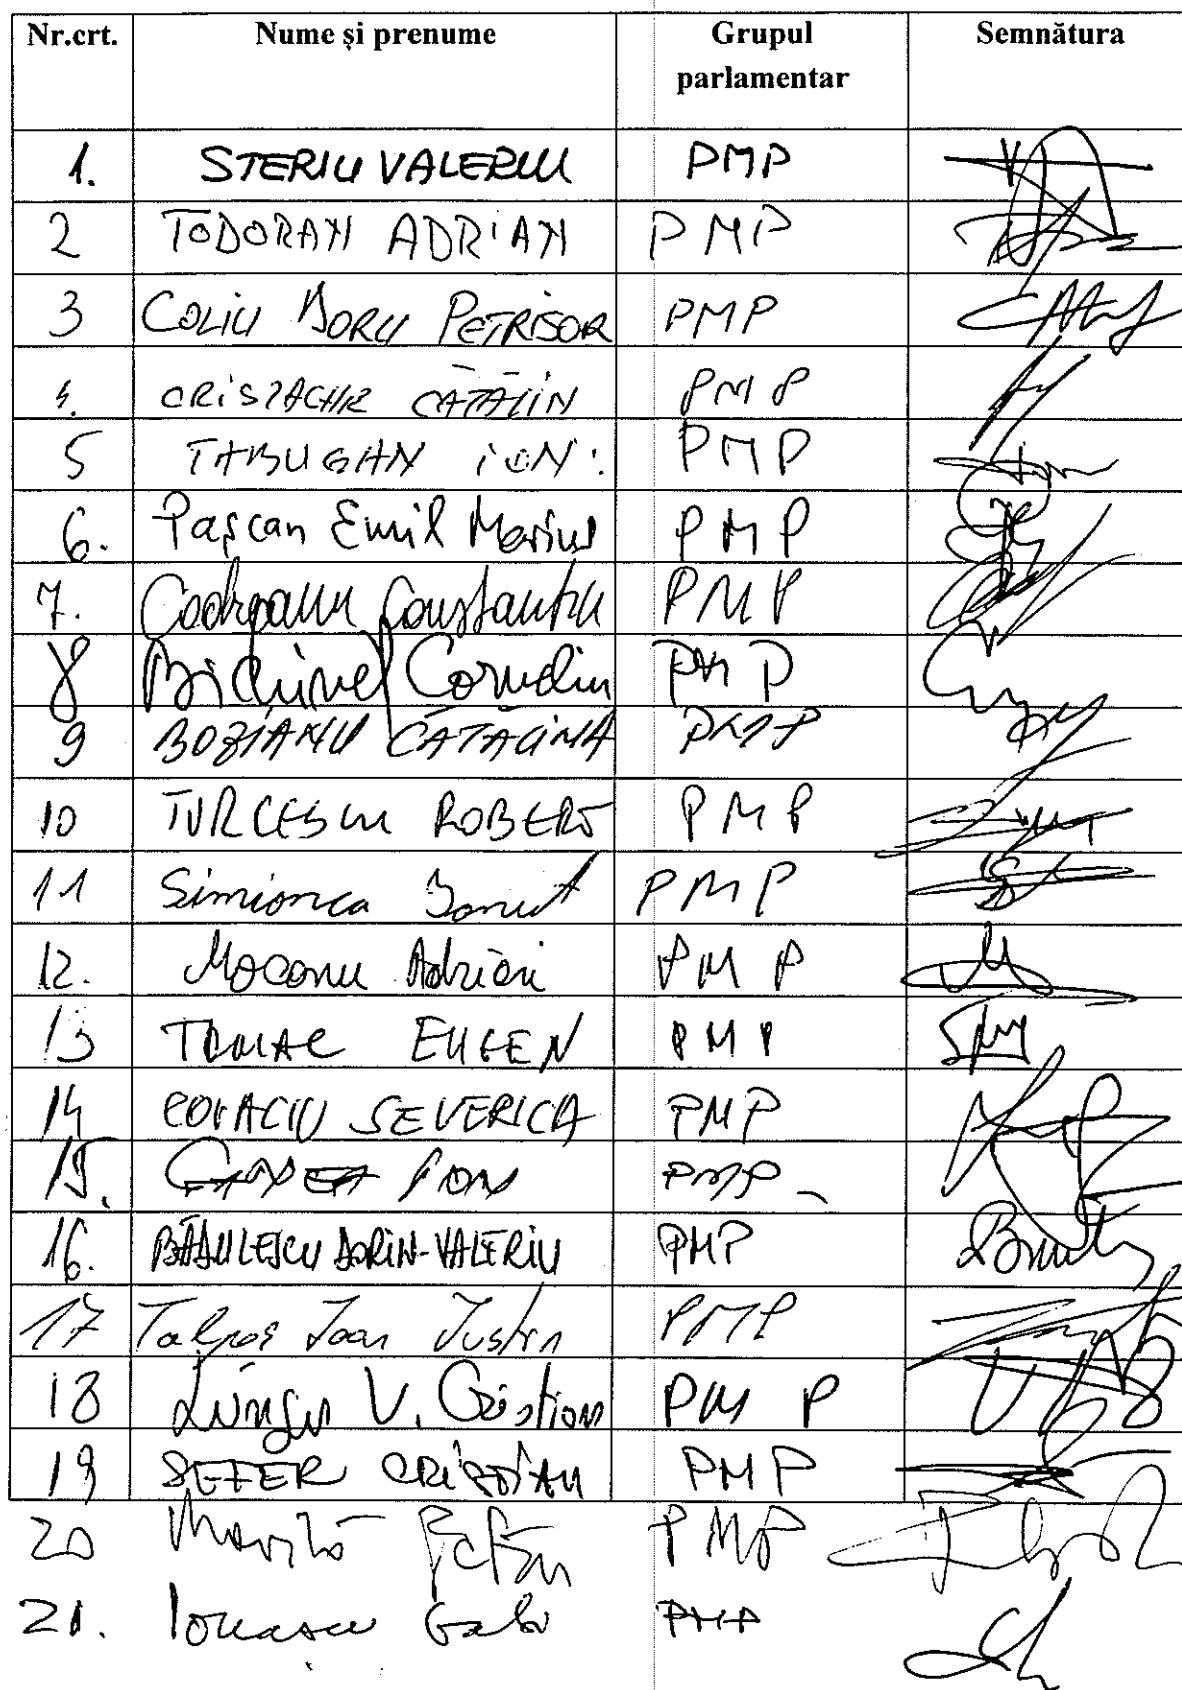 Nr.crt. Nume și prenume Grupul parlamentar Semnătura
1. STERIU VALERIU PMP
2 TODORAN ADRIAN PMP
3 COLIU DORU PETRISOR PMP
4. CRISTACHE CĂTĂLIN PMP
5 TABUGAN ION PMP
6. Pașcan Emil Marius PMP
7. Codreanu Constantin PMP
8 Bichinet Corneliu PMP
9 BOZIANU CĂTĂLINA PMP
10 TURCESCU ROBERT PMP
11 Simionca Ionut PMP
12. Mocanu Adrian PMP
13 TOMAC EUGEN PMP
14 COVACIU SEVERICA PMP
15. GANEA ION PMP
16. BĂDULESCU DORIN-VALERIU PMP
17 Talpos Ioan Iustin PMP
18 Lungu V. Cristian PMP
19 SEFER CRISTIAN PMP
20 PMP
21. Ionascu Gabi PMP